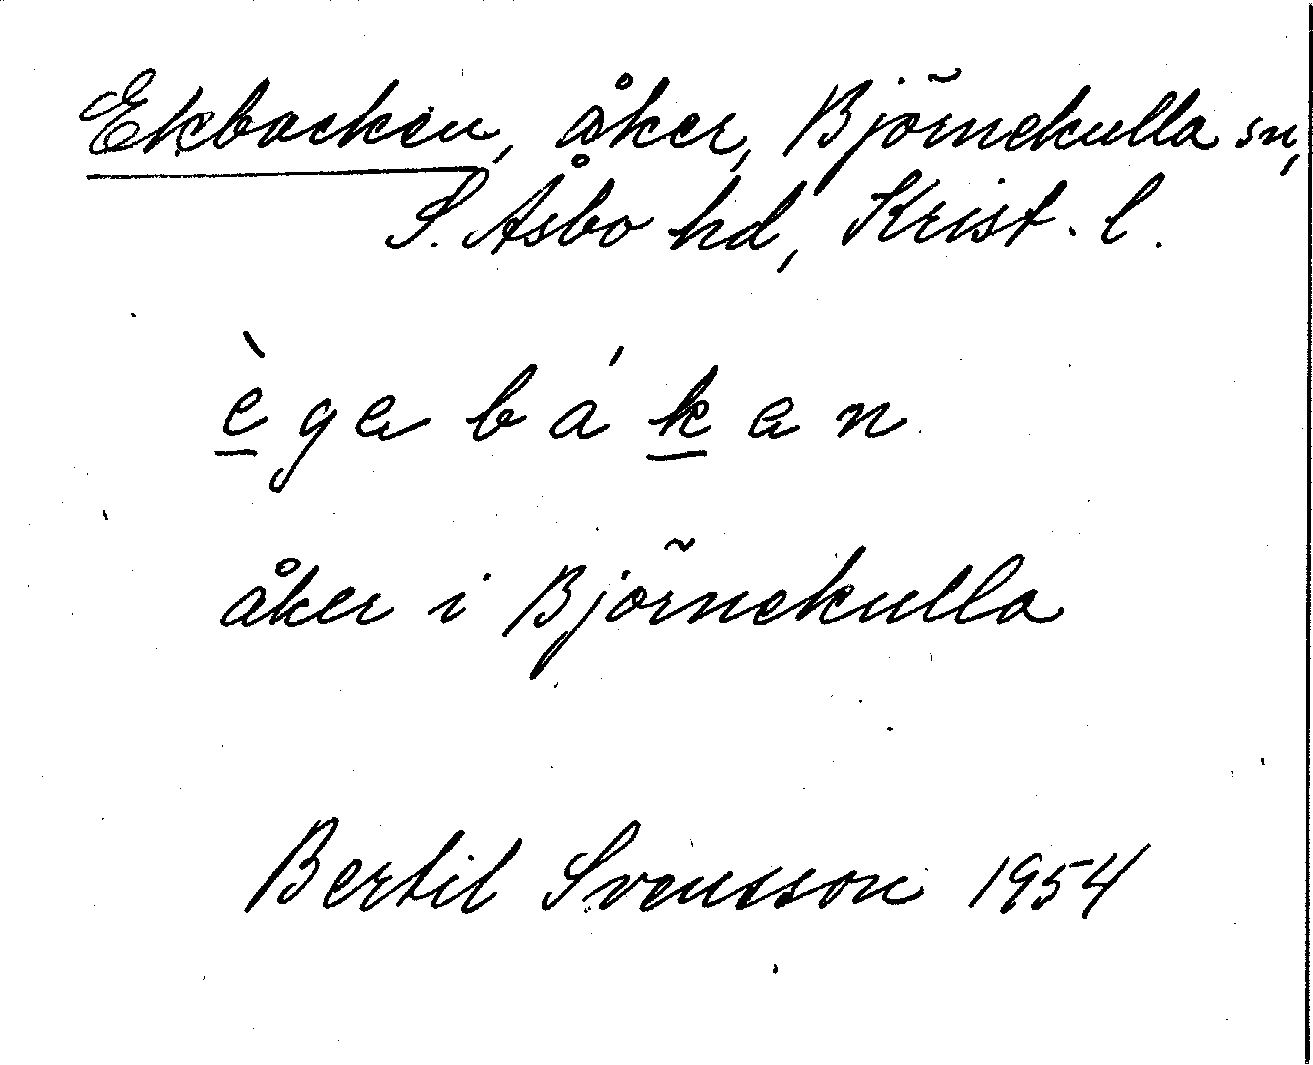 Ekbacken, åker, Björnekulla sn,
S. Åsbo hd, Krist. l.
ègabákan
åker i Björnekulla
Bertil Svensson 1954